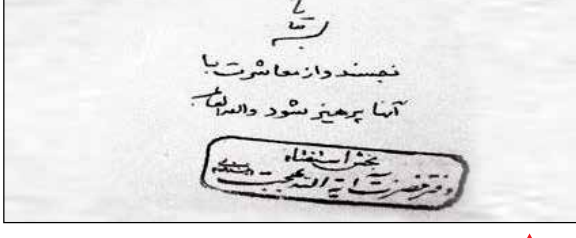 بسمه تعالی
نجسند و از معاشرت با
آنها پرهیز شود والله العالم
بخش استفتاء
دفتر حضرت آیة الله بهجت